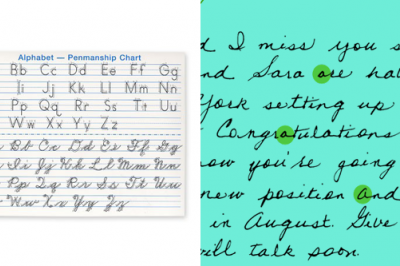 Alphabet — Penmanship Chart
Bb Cc Dd Ee Ff Gg
Ii Jj Kk Ll Mm Nn
Pp Qq Rr Ss Tt Uu
Ww Xx Yy Zz
Bb Cc Dd Ee Ff Gg
Ii Jj Kk Ll Mm Nn
Pp Qq Rr Ss Tt Uu
Ww Xx Yy Zz
I miss you
Sara are
York setting up
Congratulations
you're going
new position and
in August. Give
will talk soon.